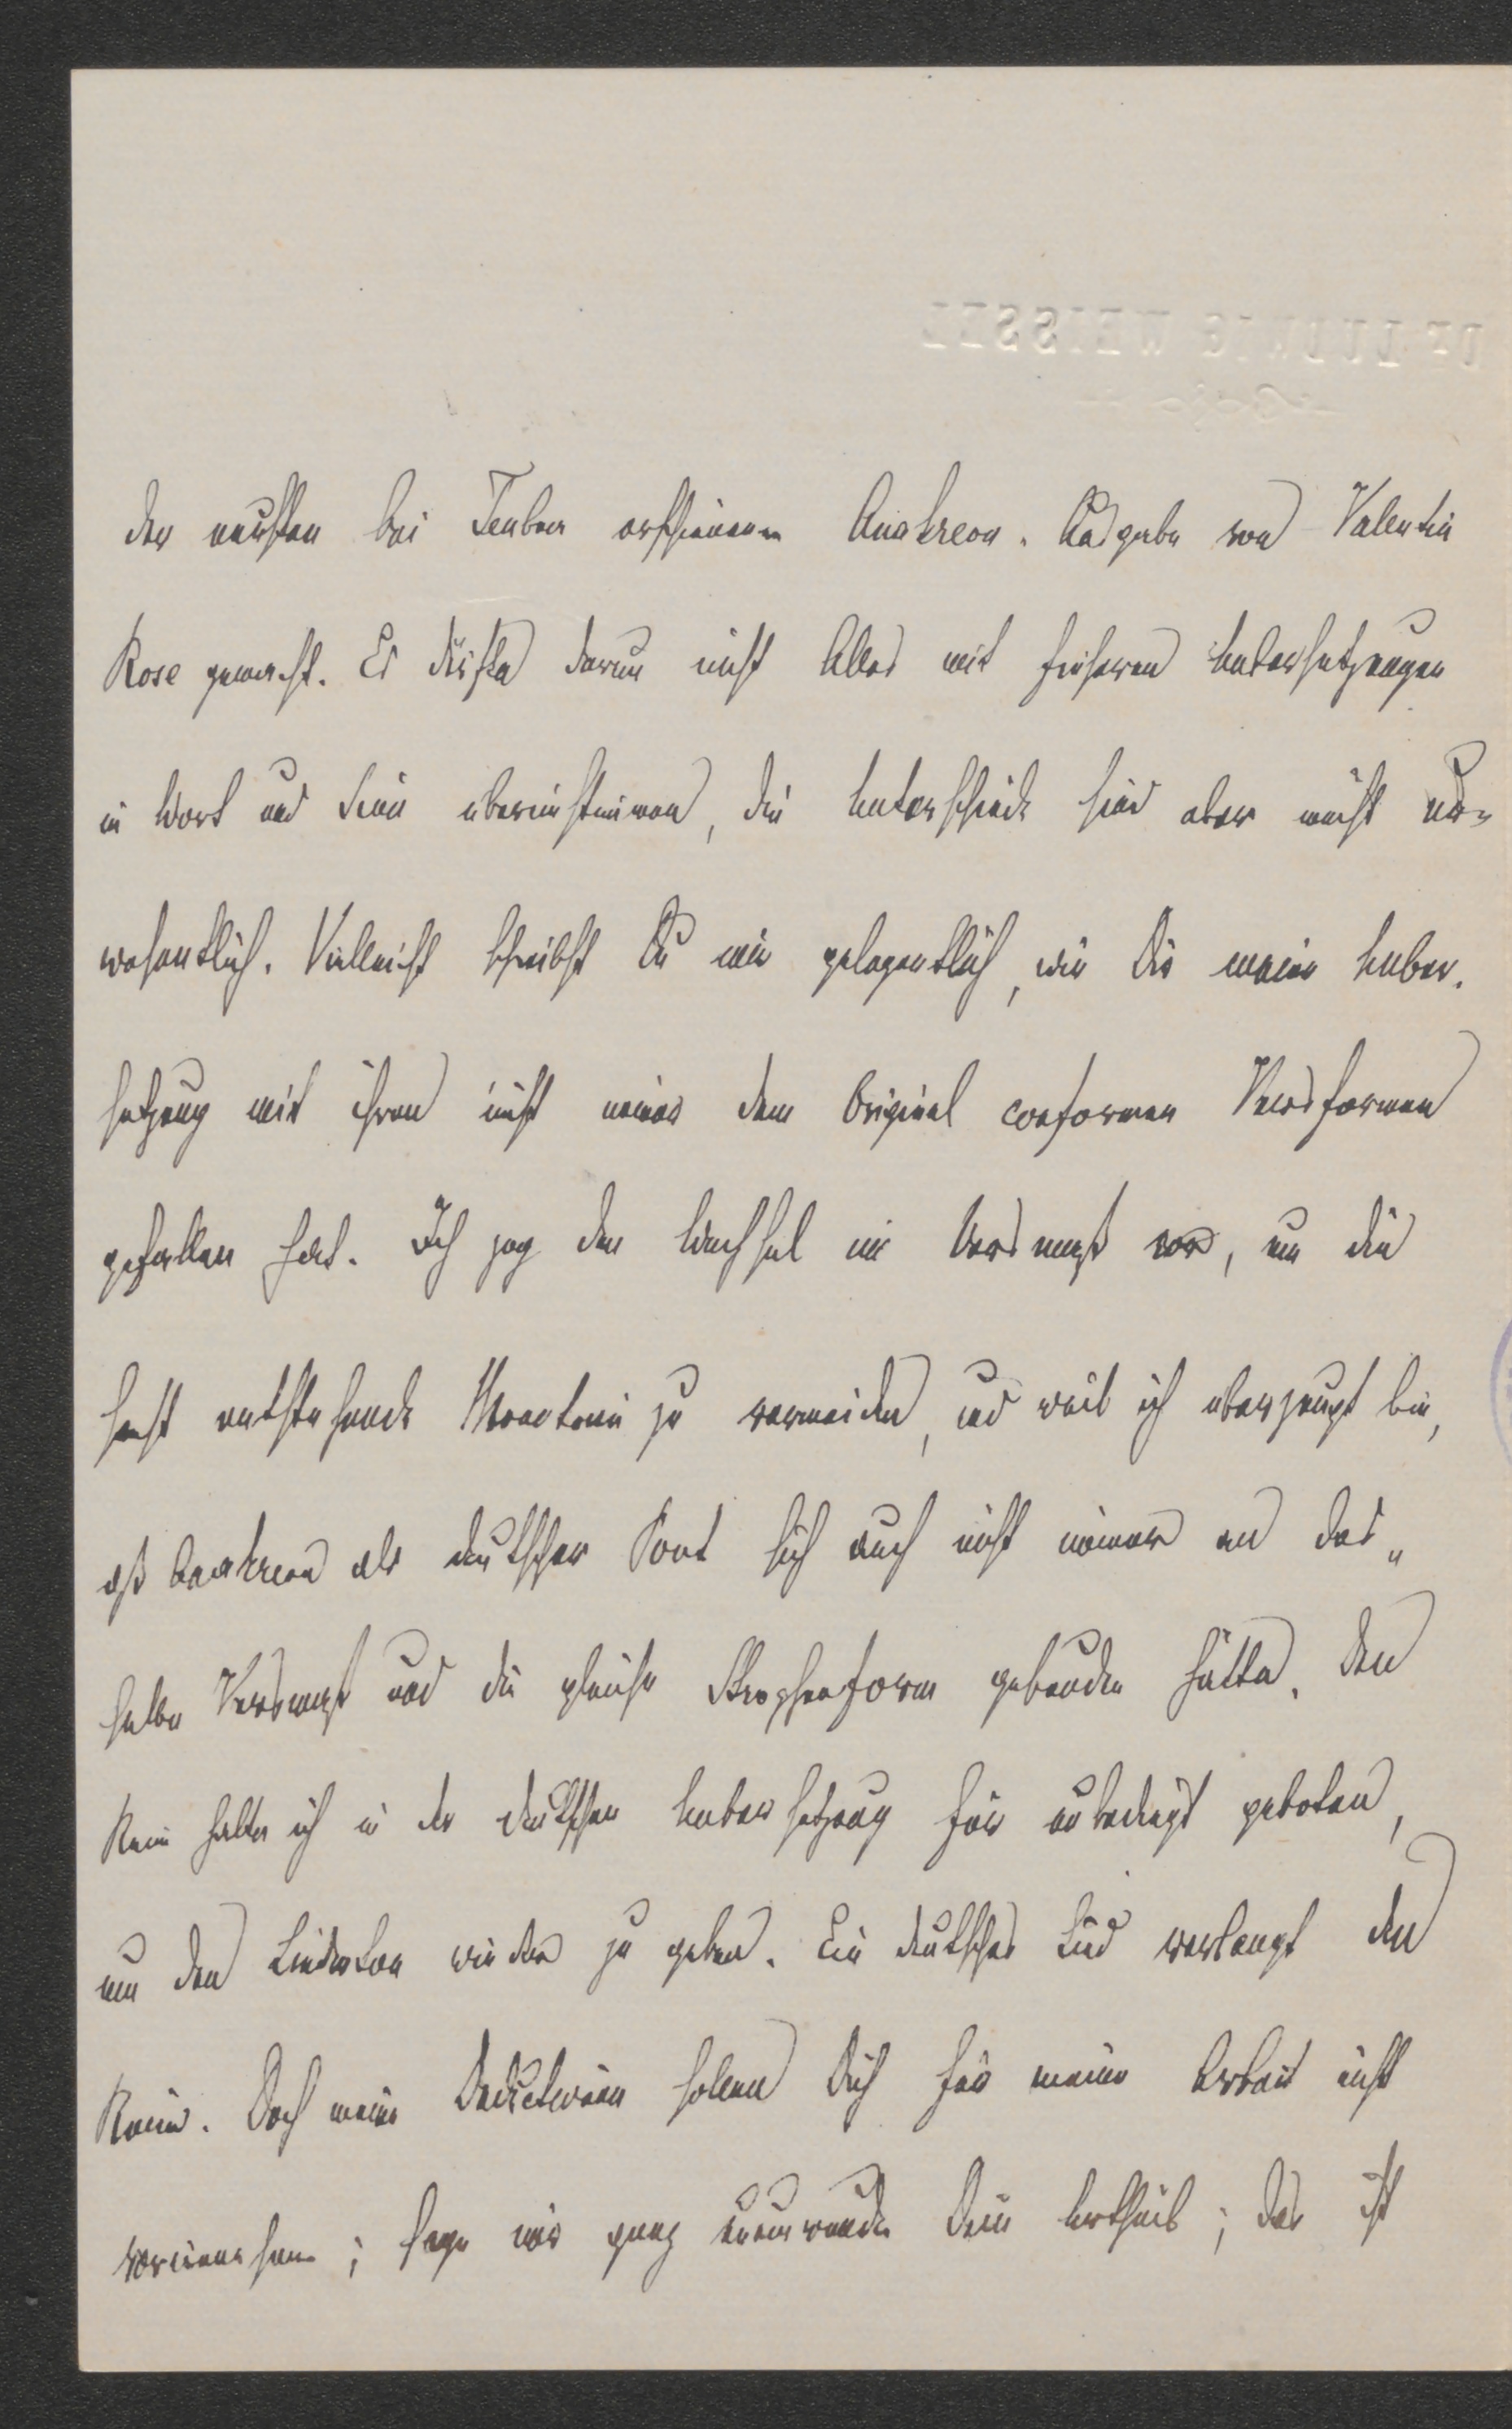 Dr LUDWIG WEISSEL
der neuesten bei Teubner erschienenen Anakreon-Ausgabe von Valentin
Rose gemacht. Es dürfte darum nicht Alles mit früheren Uebersetzungen
in Wort und Sinn übereinstimmen, die Unterschiede sind aber meist un-
wesentlich. Vielleicht schreibst Du mir gelegentlich, wie Dir meine Ueber-
setzung mit ihren nicht immer dem Original conformen Versformen
gefallen hat. Ich zog den Wechsel im Versmaß vor, um die
sonst entstehende Monotonie zu vermeiden, und weil ich überzeugt bin,
daß Anakreon als deutscher Poet sich auch nicht immer an das-
selbe Versmaß und die gleiche Strophenform gebunden hätte. Den
Reim halte ich in der deutschen Uebersetzung für unbedingt geboten,
um den Liederton wieder zu geben. Ein deutsches Lied verlangt den
Reim. Doch meine Deductionen sollen Dich für meine Arbeit nicht
voreinnehmen; sage mir ganz unumwunden Dein Urtheil; das ist